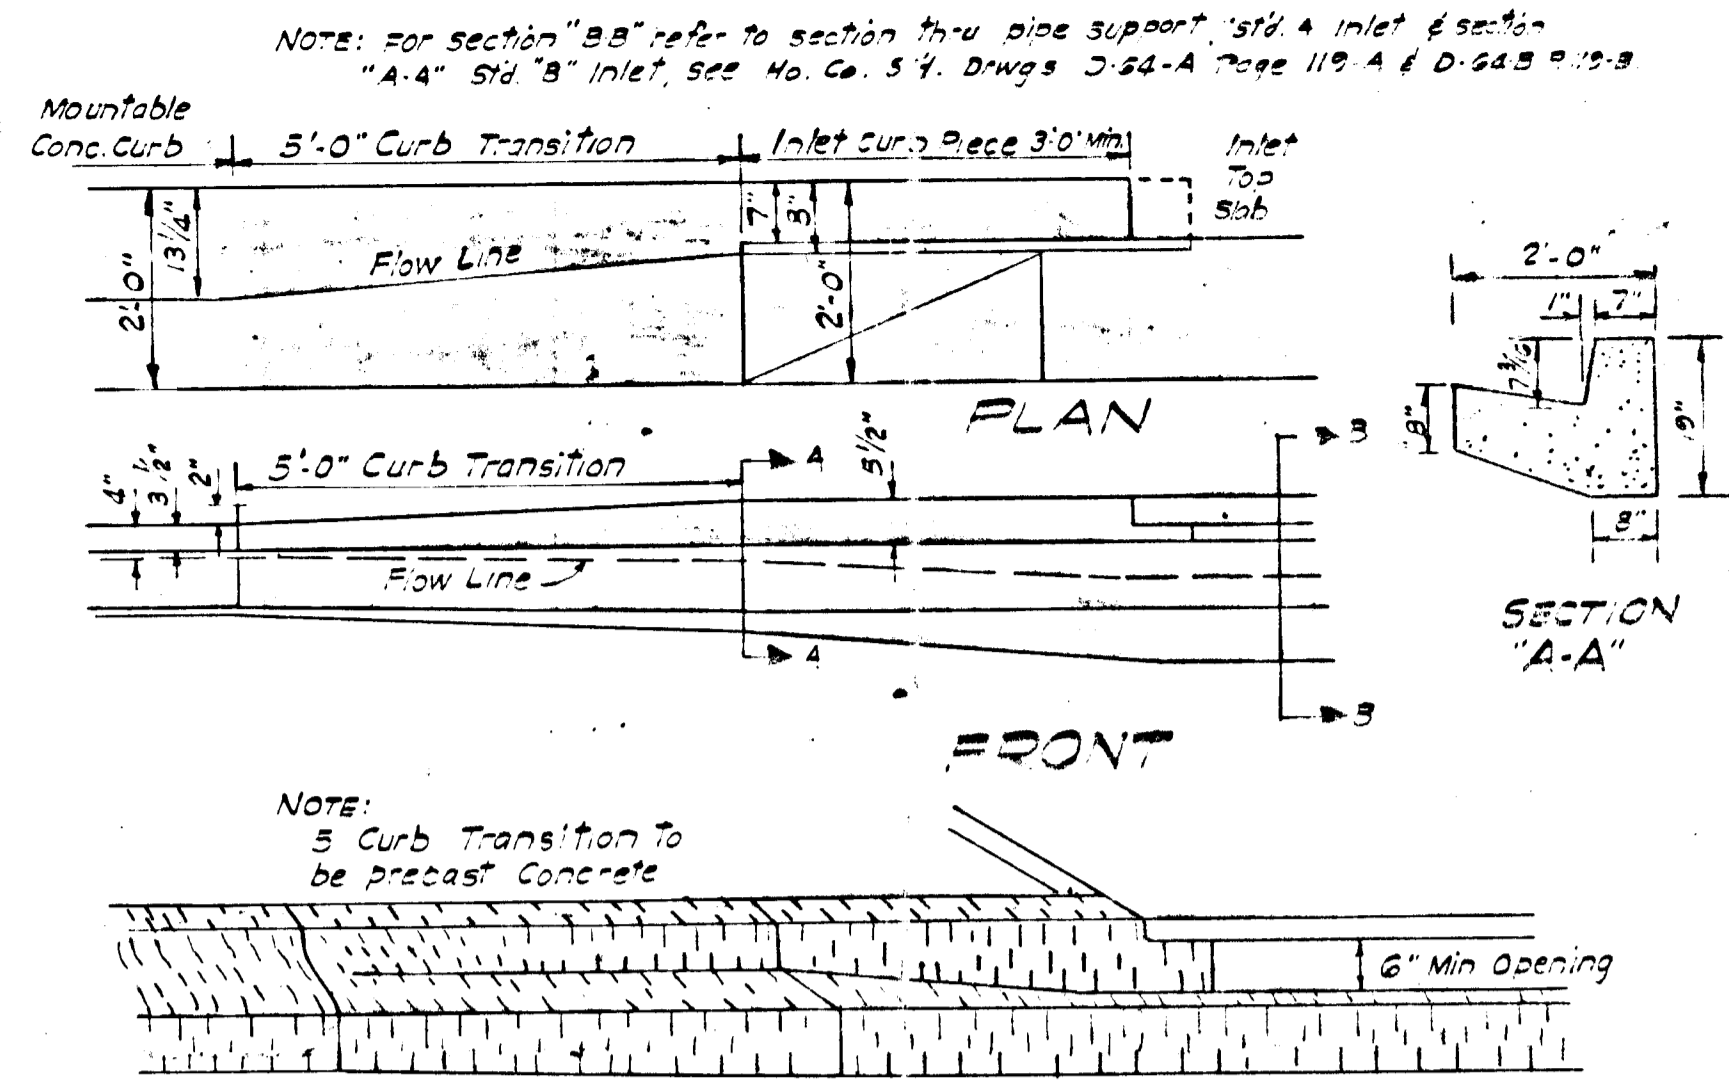 NOTE: For section "B-B" refer to section thru pipe support, std. A Inlet & section
"A-A" Std. "B" Inlet, see Ho. Co. Drwgs D-64-A Page 119-A & D-64-B
Mountable
Conc. Curb
5'-0" Curb Transition
Inlet Curb Piece 3'-0" Min.
Inlet
Top
Slab
13 1/4"
2'-0"
Flow Line
7"
8"
2'-0"
PLAN
2'-0"
1"
7"
7 3/16
8"
8"
SECTION
"A-A"
4"
3 1/2"
2"
5'-0" Curb Transition
A
5 1/2"
B
Flow Line
A
B
FRONT
NOTE:
5 Curb Transition To
be precast Concrete
6" Min Opening